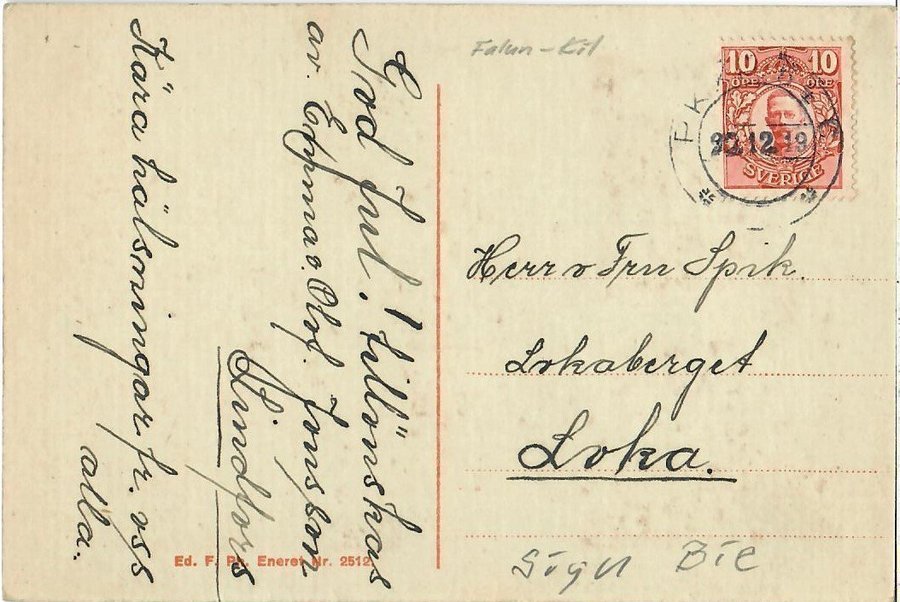 God Jul. tillönskas
av. Emma o. Olof. Jonsson
Lindfors
Kära hälsningar fr. oss
alla.
Falun-Kil
10 10
ÖRE ÖRE
SVERIGE
PKXP
12 19
Herr o Fru Spik.
Lokaberget
Loka.
Sign BIE
Ed. F. Eneret Nr. 2512.